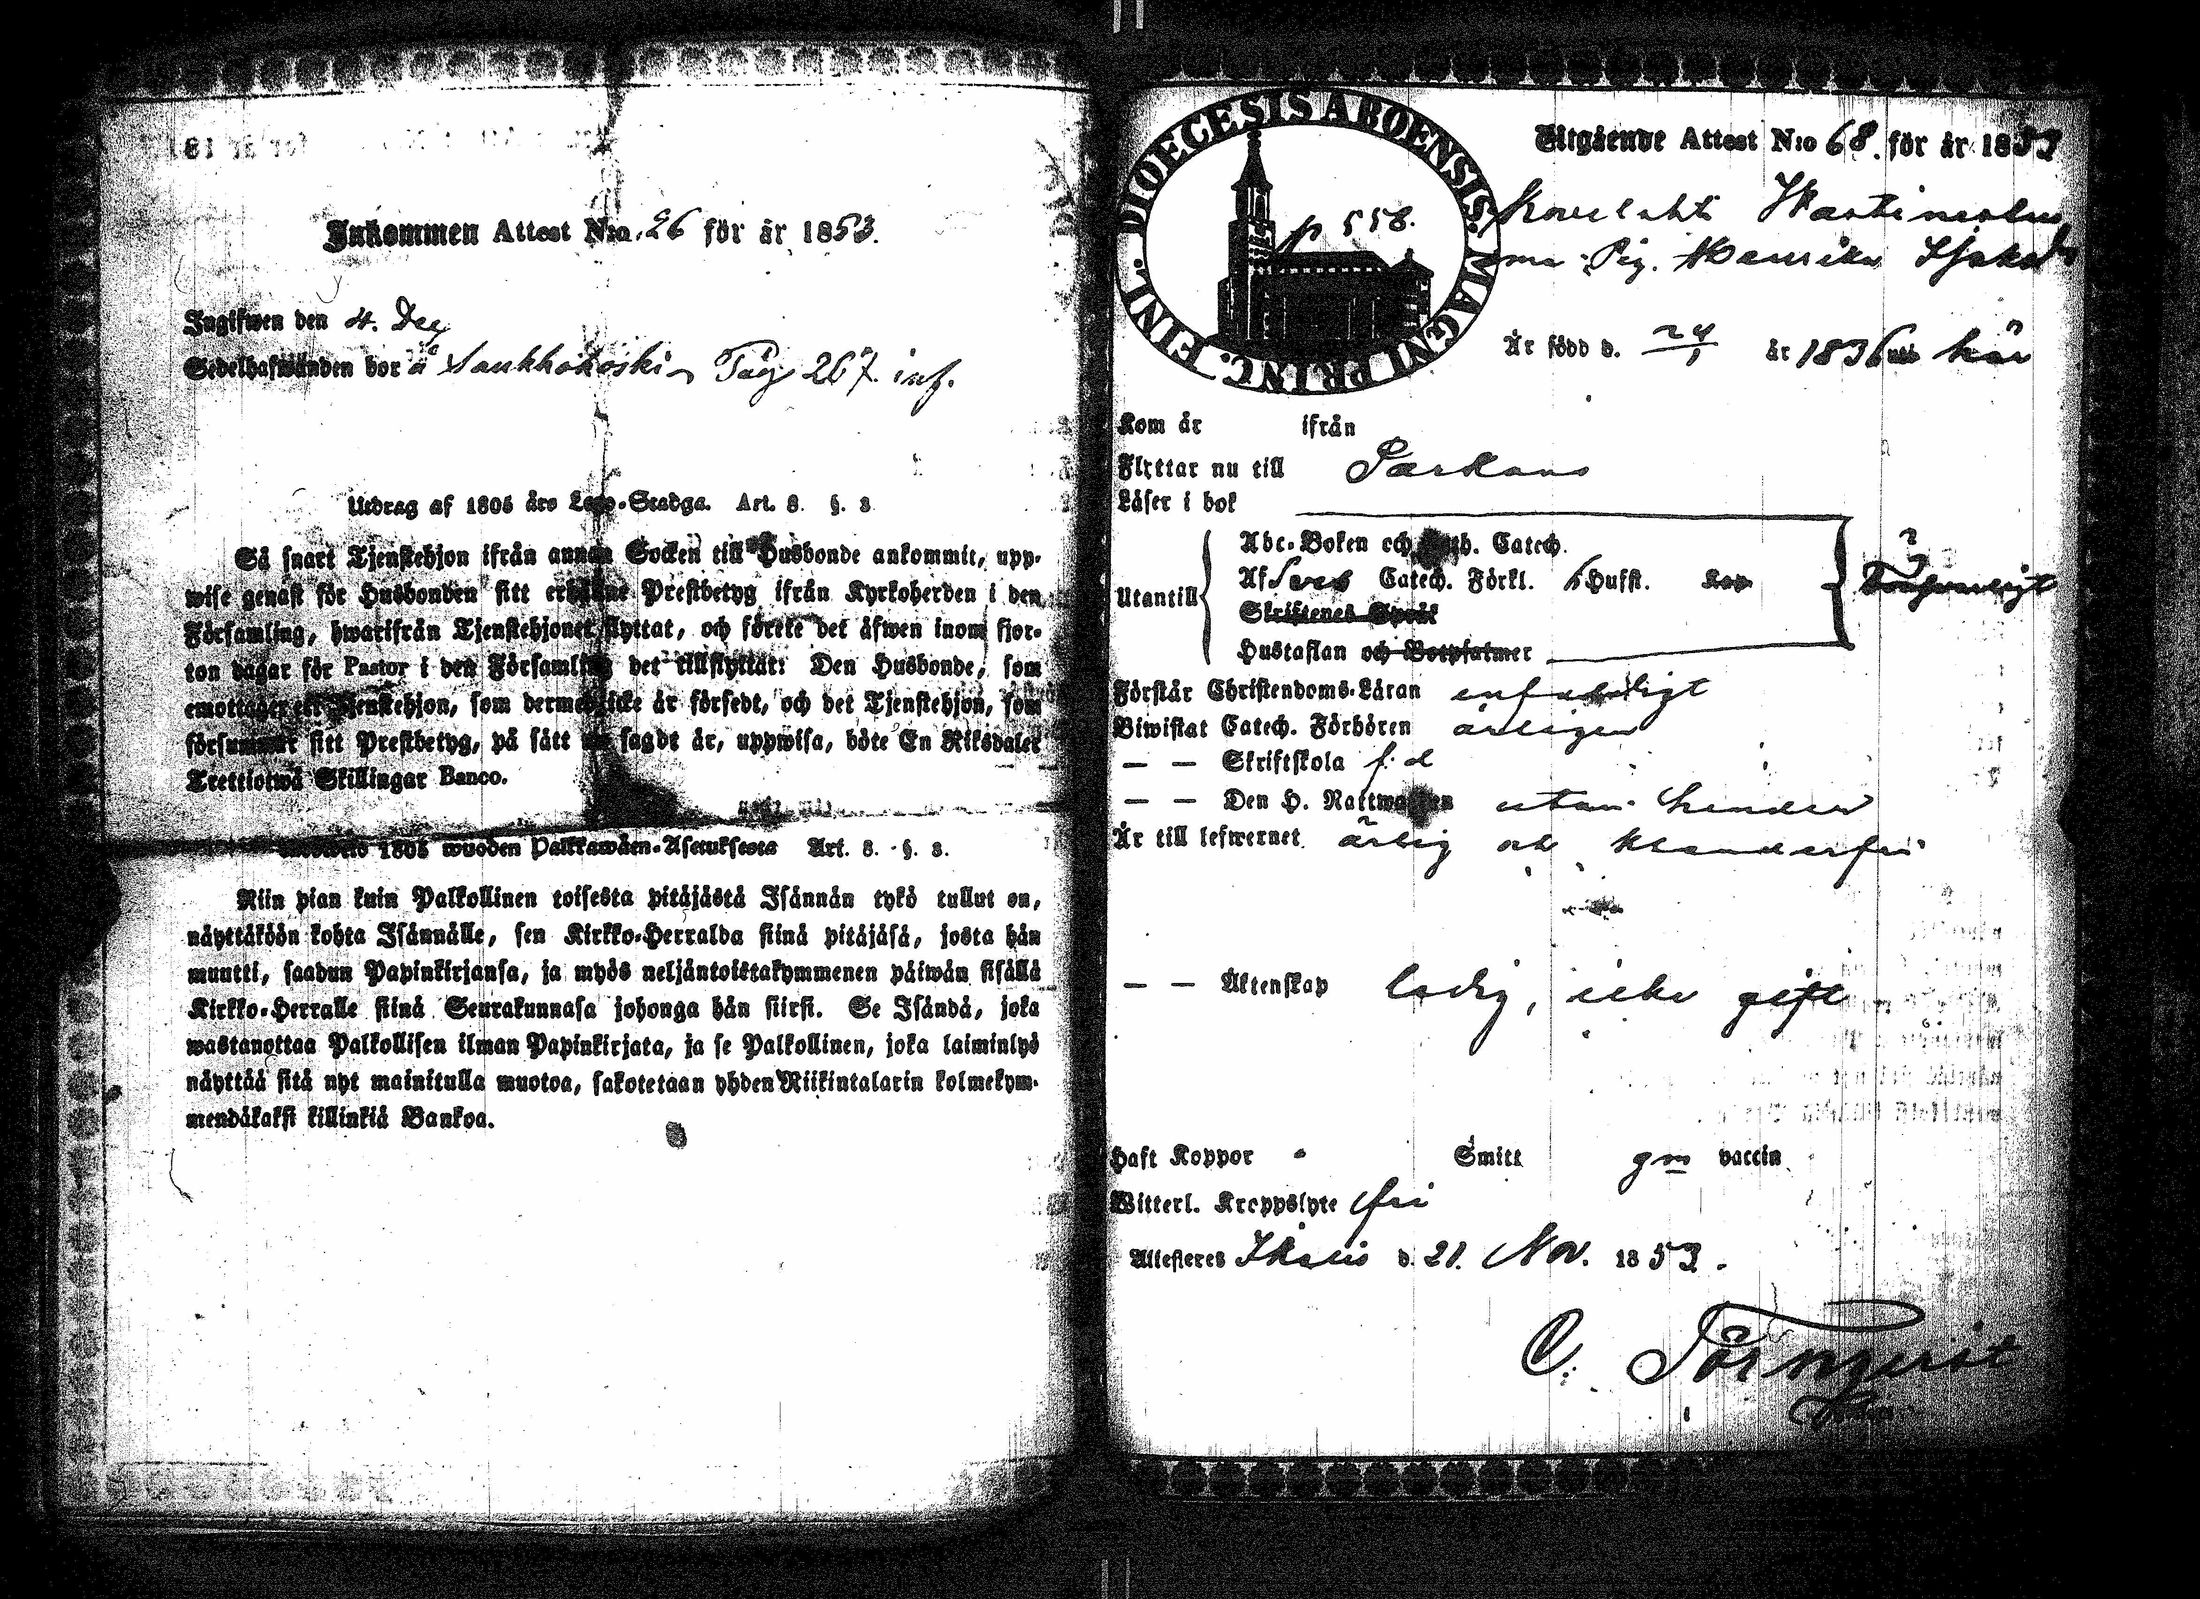 Inkommen Attest N:o 26 för år 1853.
Ingifwen den 4. Dec
Sedelhafwanden bor å Sankhakoski Pag 267. inf.
Utdrag af 1805 års Lego-Stadga. Art. 8. §. 3
Så snart Tjenstehjon ifrån annan Socken till Husbonde ankommit, upp-
wise genast för Husbonden sitt erhållne Prestbetyg ifrån Kyrkoherden i den
Församling, hwarifrån Tjenstehjonet flyttat, och förete det äfwen inom fjor-
ton dagar för Pastor i den Församling det tillflyttat: Den Husbonde, som
emottager ett Tjenstehjon, som dermed icke är försedt, och det Tjenstehjon, som
försummar sitt Prestbetyg, på sätt nu sagdt är, uppwisa, böte En Riksdaler
Trettiotwå Skillingar Banco.
1805 wuoden Palkkawäen-Asetuksesta Art. 8. §. 3.
Niin pian kuin Palkollinen toisesta pitäjästä Isännän tykö tullut on,
näyttäköön kohta Isännälle, sen Kirkko-Herralda siinä pitäjäsä, josta hän
muutti, saadun Papinkirjansa, ja myös neljäntoistakymmenen päiwän sisällä
Kirkko-Herralle siinä Seurakunnasa johonga hän siirsi. Se Isändä, joka
wastanottaa Palkollisen ilman Papinkirjata, ja se Palkollinen, joka laiminlyö
näyttää sitä nyt mainitulla muotoa, sakotetaan yhden Riikintalarin kolmekym-
mendäkaksi killinkiä Bankoa.
DIOECESIS ABOENSIS. MAGNI PRINC. FINL.
p 558.
Utgående Attest N:o 68. för år 1853
Kovelahti
Pig.
Är född d. 24/1 år 1836 uti här
Kom år ifrån
Flyttar nu till Parkano
Läser i bok
Utantill
Abc-Boken och Luth. Catech.
Af Sveb Catech. Förkl. 6 Hufst. Kap
Skriftenes Språk
Hustaflan och Botpsalmer
Förstår Christendoms-Läran enfaldigt
Biwistat Catech. Förhören årligen
— — Skriftskola f. d
— — Den H. Nattwarden utan hinder
Är till lefwernet ärlig och klanderfri
— — Äktenskap ledig, icke gift
Haft Koppor Smitt gm vaccin
Witterl. Kroppslyte fri
Attesteres Ikalis d. 21. Nov. 1853.
C. Törnqvist